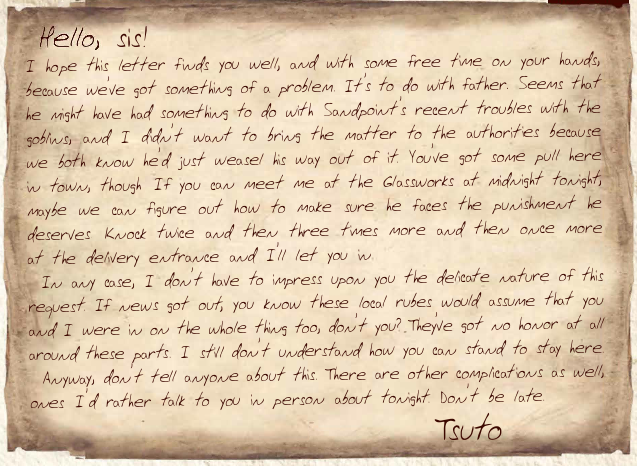 Hello, sis!
I hope this letter finds you well, and with some free time on your hands,
because we've got something of a problem. It's to do with father. Seems that
he might have had something to do with Sandpoint's recent troubles with the
goblins, and I didn't want to bring the matter to the authorities because
we both know he'd just weasel his way out of it. You've got some pull here
in town, though If you can meet me at the Glassworks at midnight tonight,
maybe we can figure out how to make sure he faces the punishment he
deserves Knock twice and then three times more and then once more
at the delivery entrance and I'll let you in.
In any case, I don't have to impress upon you the delicate nature of this
request. If news got out, you know these local rubes would assume that you
and I were in on the whole thing too, don't you?. They've got no honor at all
around these parts. I still don't understand how you can stand to stay here.
Anyway, don't tell anyone about this. There are other complications as well,
ones I'd rather talk to you in person about tonight Don't be late.
Tsuto